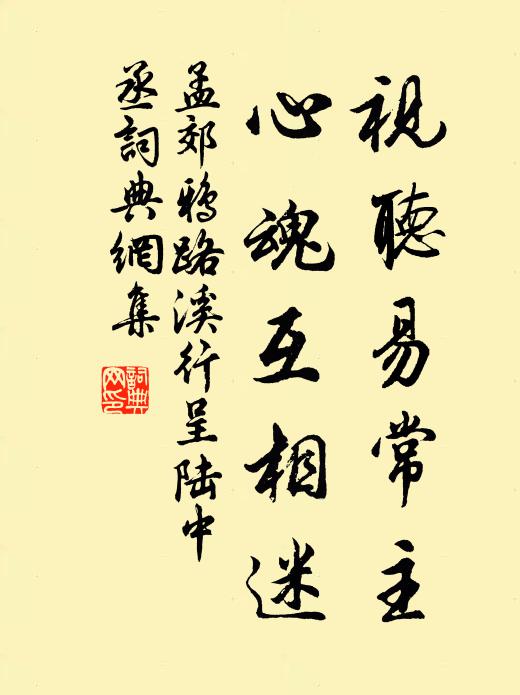 視聽易常主
心魂互相迷
孟郊鴉路溪行呈陆中
丞詞典網集
詞典网印